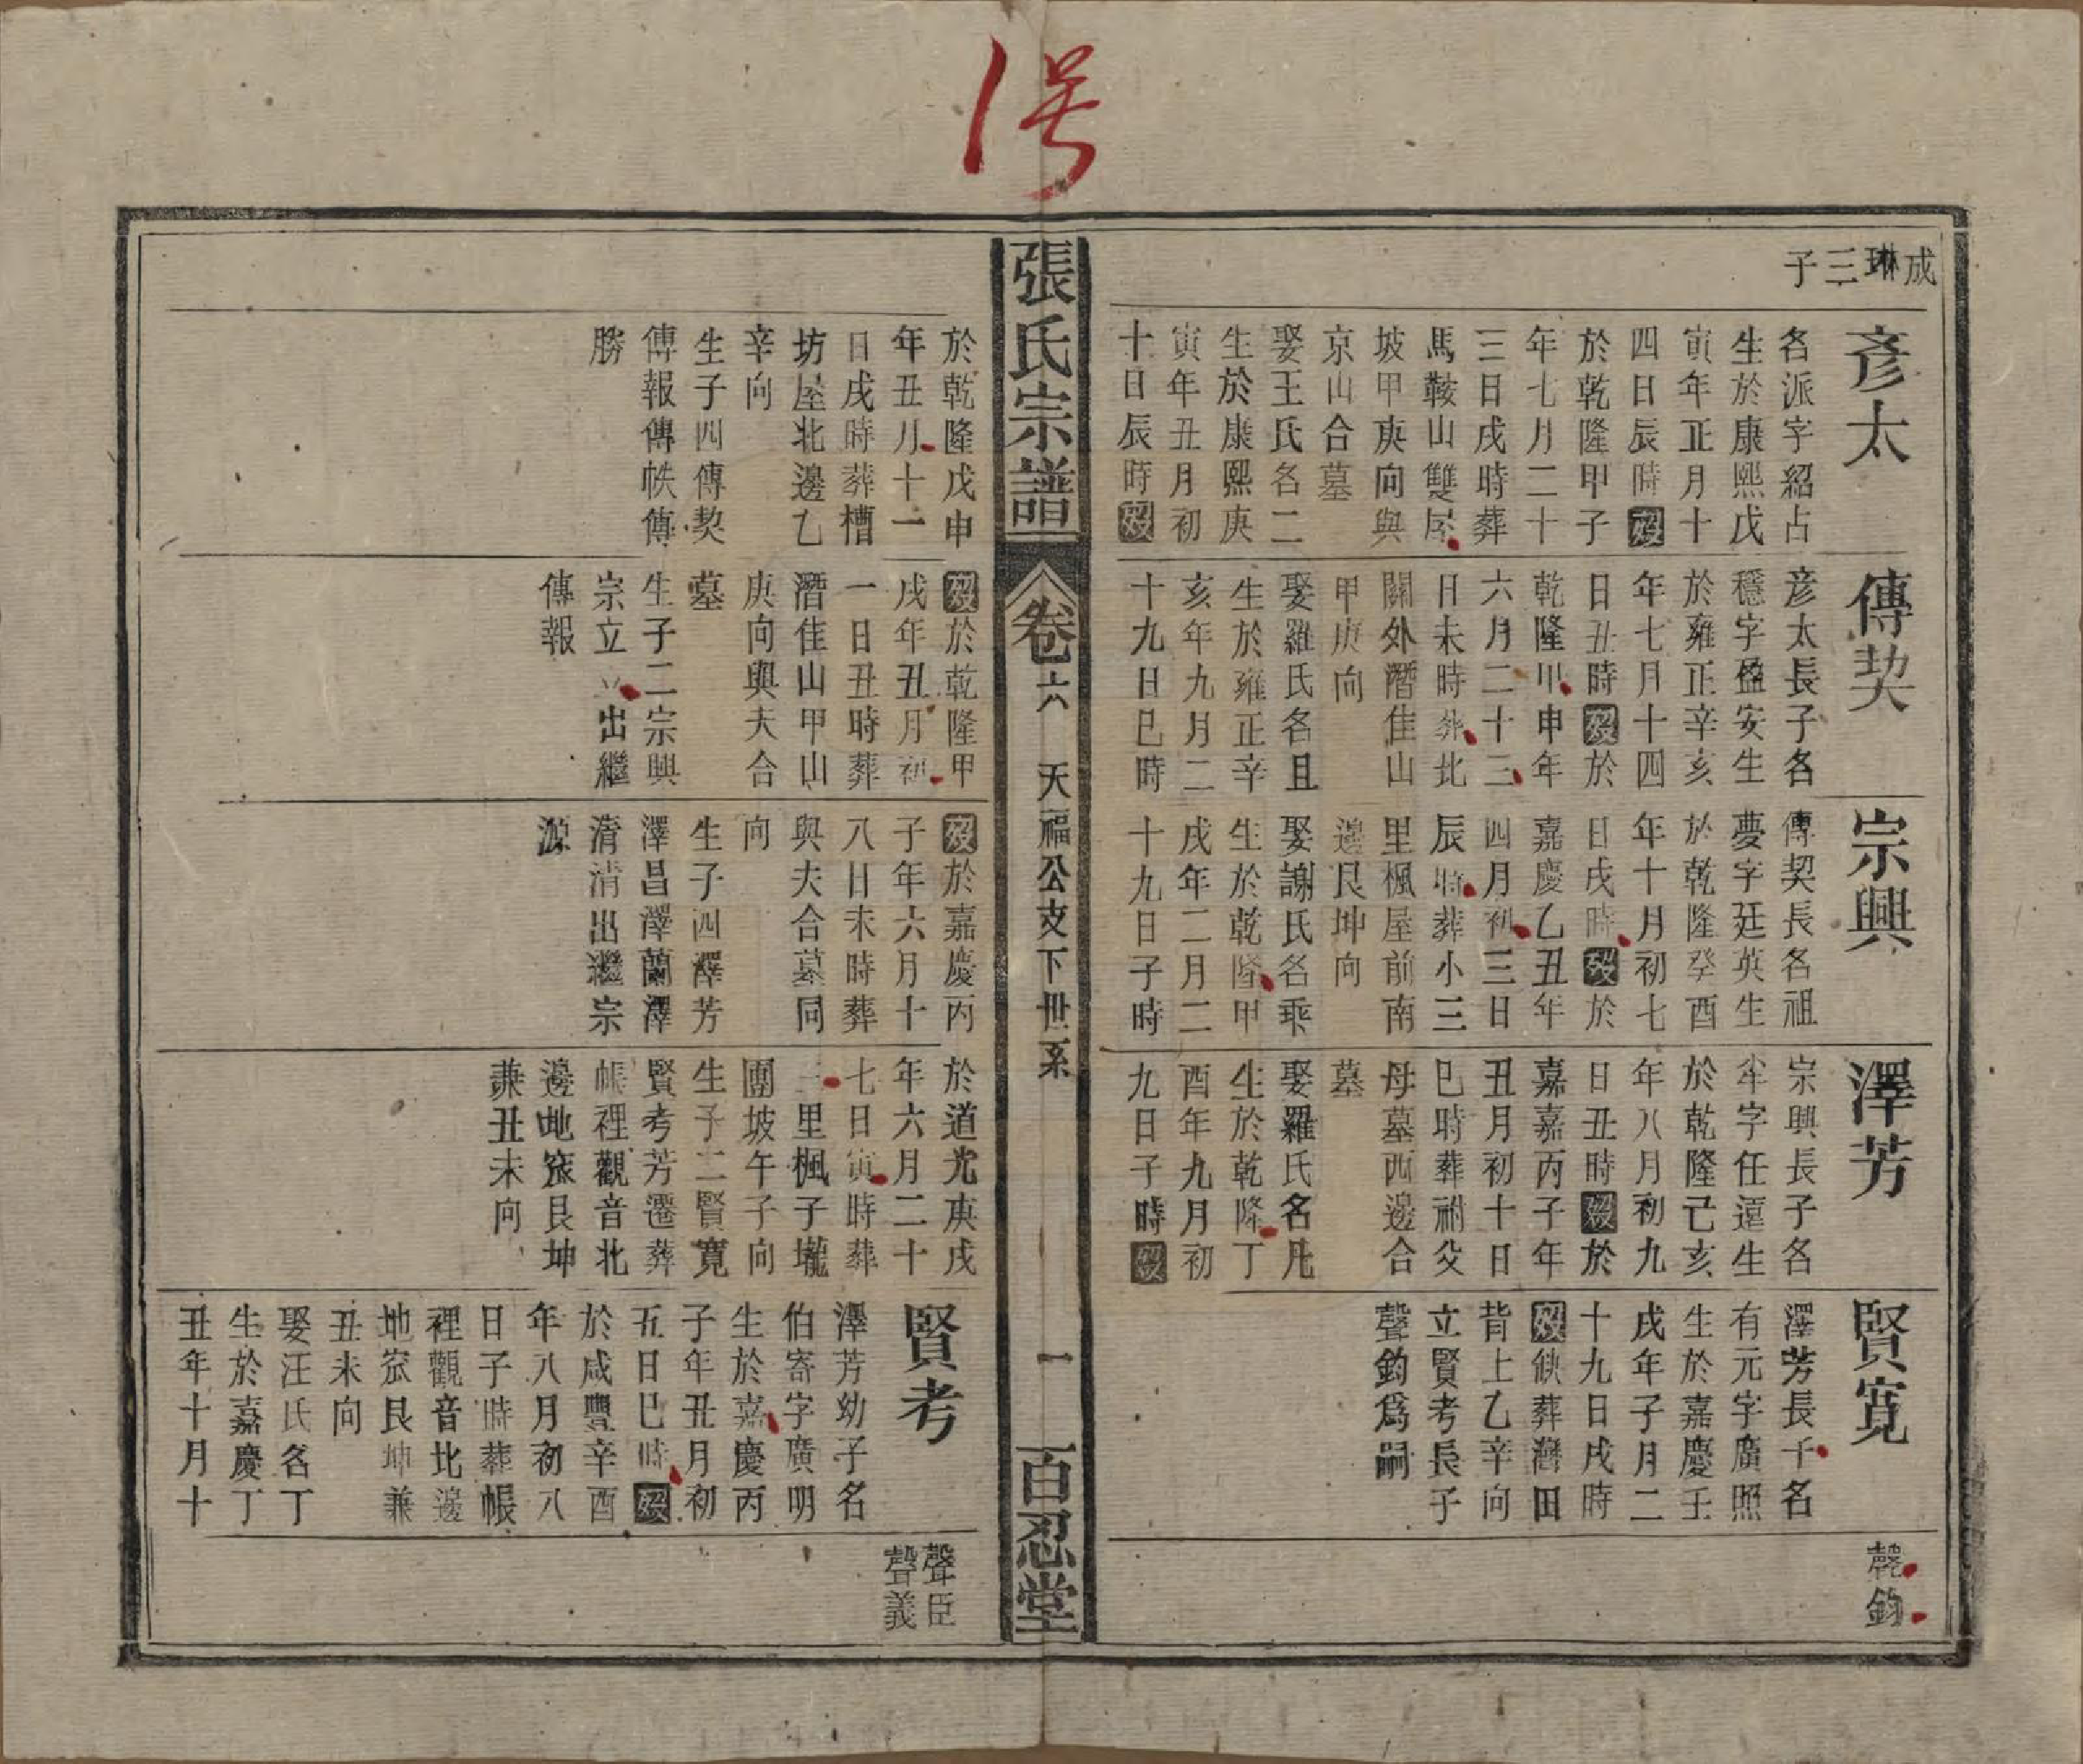 1号
成琳三子
彥太
名派字紹占
生於康熙戊
寅年正月十
四日辰時歿
於乾隆甲子
年七月二十
三日戌時葬
馬鞍山雙屋
坡甲庚向與
京山合墓
娶王氏名二
生於康熙庚
寅年丑月初
十日辰時歿
於乾隆戊申
年丑月十一
日戌時葬槽
坊屋北邊乙
辛向
生子四傳契
傳報傳帙傳
勝
傳契
彥太長子名
穩字盈安生
於雍正辛亥
年七月十四
日丑時歿於
乾隆甲申年
六月二十三
日未時葬北
關外潛佳山
甲庚向
娶羅氏名且
生於雍正辛
亥年九月二
十九日巳時
歿於乾隆甲
戌年丑月初
一日丑時葬
潛佳山甲山
庚向與夫合
墓
生子二宗興
宗立 出繼
傳報
宗興
傳契長名祖
夢字廷英生
於乾隆癸酉
年十月初七
日戌時歿於
嘉慶乙丑年
四月初三日
辰時葬小三
里楓屋前南
邊艮坤向
娶謝氏名乘
生於乾隆甲
戌年二月二
十九日子時
歿於嘉慶丙
子年六月十
八日未時葬
與夫合墓同
向
生子四澤芳
澤昌澤蘭澤
清清出繼宗
源
澤芳
宗興長子名
牮字任遠生
於乾隆己亥
年八月初九
日丑時歿於
嘉嘉丙子年
丑月初十日
巳時葬祔父
母墓西邊合
墓
娶羅氏名凡
生於乾隆丁
酉年九月初
九日子時歿
於道光庚戌
年六月二十
七日寅時葬
三里楓子壠
團坡午子向
生子二賢寬
賢考芳遷葬
帳裡觀音北
邊地窊艮坤
兼丑未向
賢寬
澤芳長子名
有元字廣照
生於嘉慶壬
戌年子月二
十九日戌時
歿缺葬灣田
背上乙辛向
立賢考長子
聲鈞爲嗣
聲鈞
賢考
澤芳幼子名
伯寄字廣明
生於嘉慶丙
子年丑月初
五日巳時歿
於咸豐辛酉
年八月初八
日子時葬帳
裡觀音北邊
地窊艮坤兼
丑未向
娶汪氏名丁
生於嘉慶丁
丑年十月十
聲臣
聲義
張氏宗譜 卷六 天福公支下世系 一 百忍堂